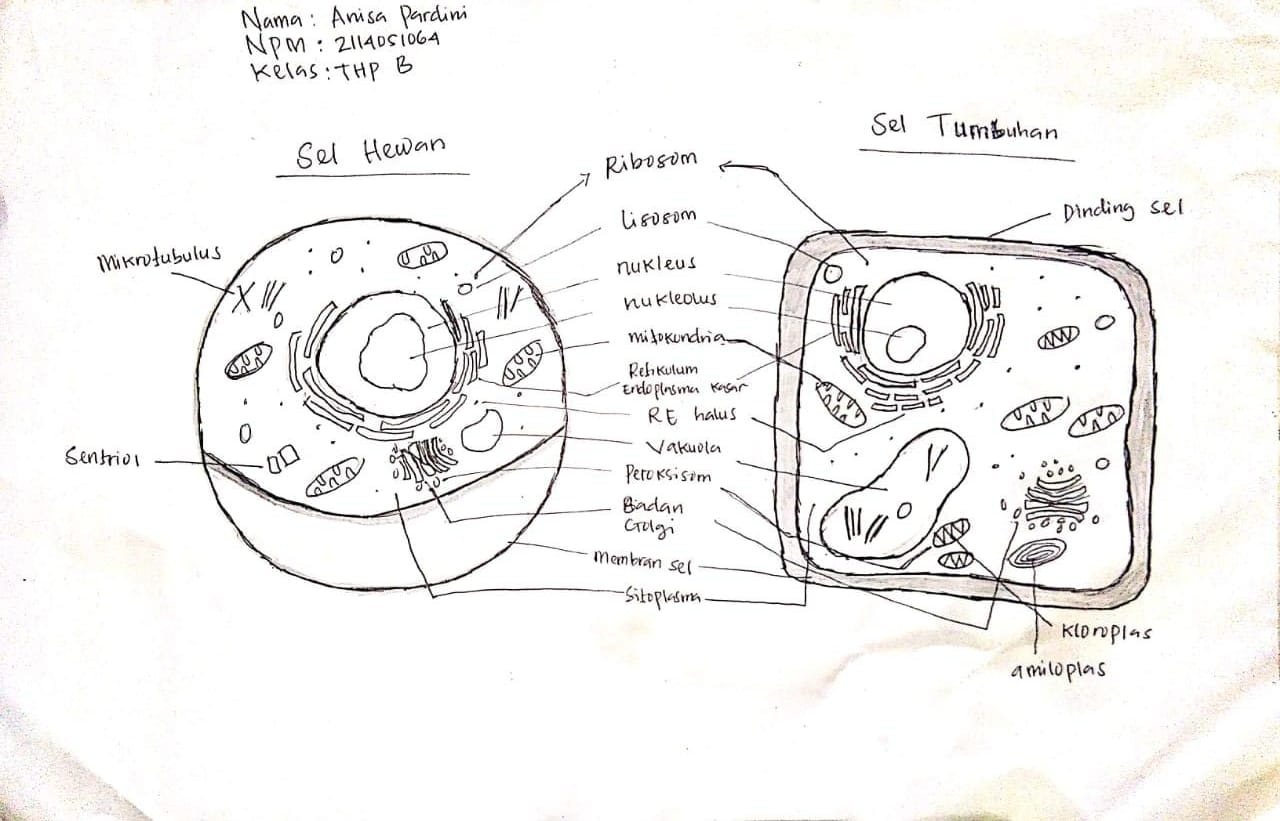 Nama : Anisa Pardini
NPM : 2114051064
Kelas : THP B
Sel Hewan
Sel Tumbuhan
Ribosom
Lisosom
nukleus
nukleolus
mitokondria
Retikulum
Endoplasma Kasar
RE halus
Vakuola
Peroksisom
Badan
Golgi
Membran sel
Sitoplasma
Mikrotubulus
Sentriol
Dinding sel
Kloroplas
amiloplas